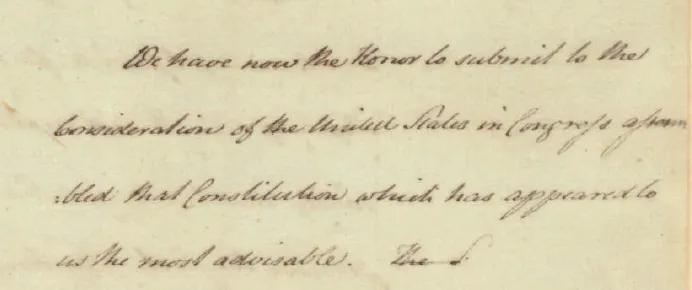 We have now the Honor to submit to the
Consideration of the United States in Congress assem
:bled that Constitution which has appeared to
us the most advisable. The